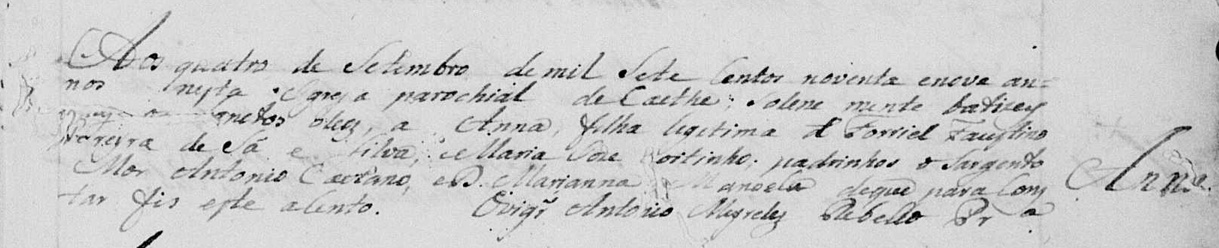 Aos quatro de Setembro de mil Sete Centos noventa enove an=
nos nesta Igreja parochial de Caethe; Solene mente batizey
os Santos oleos, a Anna, filha legitima de Faustino
Pereira de Sá e Silva, e Maria Jose Coitinho; padrinhos o Sargento
Mor Antonio Caetano, e D. Marianna Manoela deque para Cons
tar fis este asento. O vigr.º Antonio Meyreles Rebello Pr.ª
Anna.